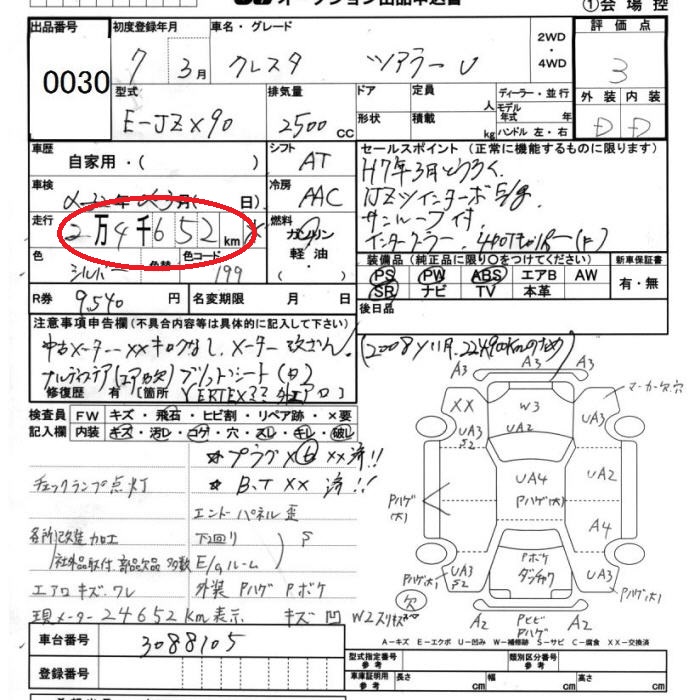 オークション出品申込書
①会場控
出品番号 初度登録年月 車名・グレード 2WD・4WD 評価点
0030 7 3月 クレスタ ツアラーV 3
型式 排気量 ドア 定員 人 ディーラー・並行 外装 内装
E-JZX90 2500CC 形状 積載 kg モデル年式 年 ハンドル 左・右 D D
車歴 自家用・( ) シフト AT セールスポイント (正常に機能するものに限ります)
H7年3月とうろく。
車検 日) 冷房 AAC 1JZツインターボE/g
走行 2万4千652km 燃料 ガソリン・軽油・( )
サンルーフ付
インタークーラー
色 シルバー 色替 色コード 199
装備品 (純正品に限り○をつけてください) 新車保証書
PS PW ABS エアB AW 有・無
SB ナビ TV 本革
R券 9,540円 名変期限 月 日 後日品
注意事項申告欄(不具合内容等は具体的に記入して下さい)
中古メーター XXキロクなし。メーター改ざん。(2008年11月 224900Kmのため)
修復歴 有 [箇所 ]
検査員 FW キズ・飛石・ヒビ割・リペア跡・×要
記入欄 内装 キズ・汚レ・コゲ・穴・スレ・キレ・破レ
☆プラグX⑥XX済!!
チェックランプ点灯 ☆B.T XX済!!
エンドパネル歪
各所改造加工 下回り S
社外品取付、部品欠品多数 E/gルーム
エアロキズ・ワレ 外装 Pハゲ Pボケ
現メーター24652Km表示 キズ 凹
車台番号 3088105
登録番号
A3 A3 A3
XX W3 マーカー欠穴
UA3 S2 UA2 UA3
Pハゲ(大) UA4 UA2
Pハゲ(大) A4
Pボケ
Pハゲ(大) UA3 S2 UA3 Pハゲ(大)
欠
A2 PヒビPハゲ A2
A-キズ E-エクボ U-凹み W-補修跡 S-サビ C-腐食 XX-交換済
型式指定番号 参考 類別区分番号 参考
車庫証明用 参考 長さ cm 幅 cm 高さ cm